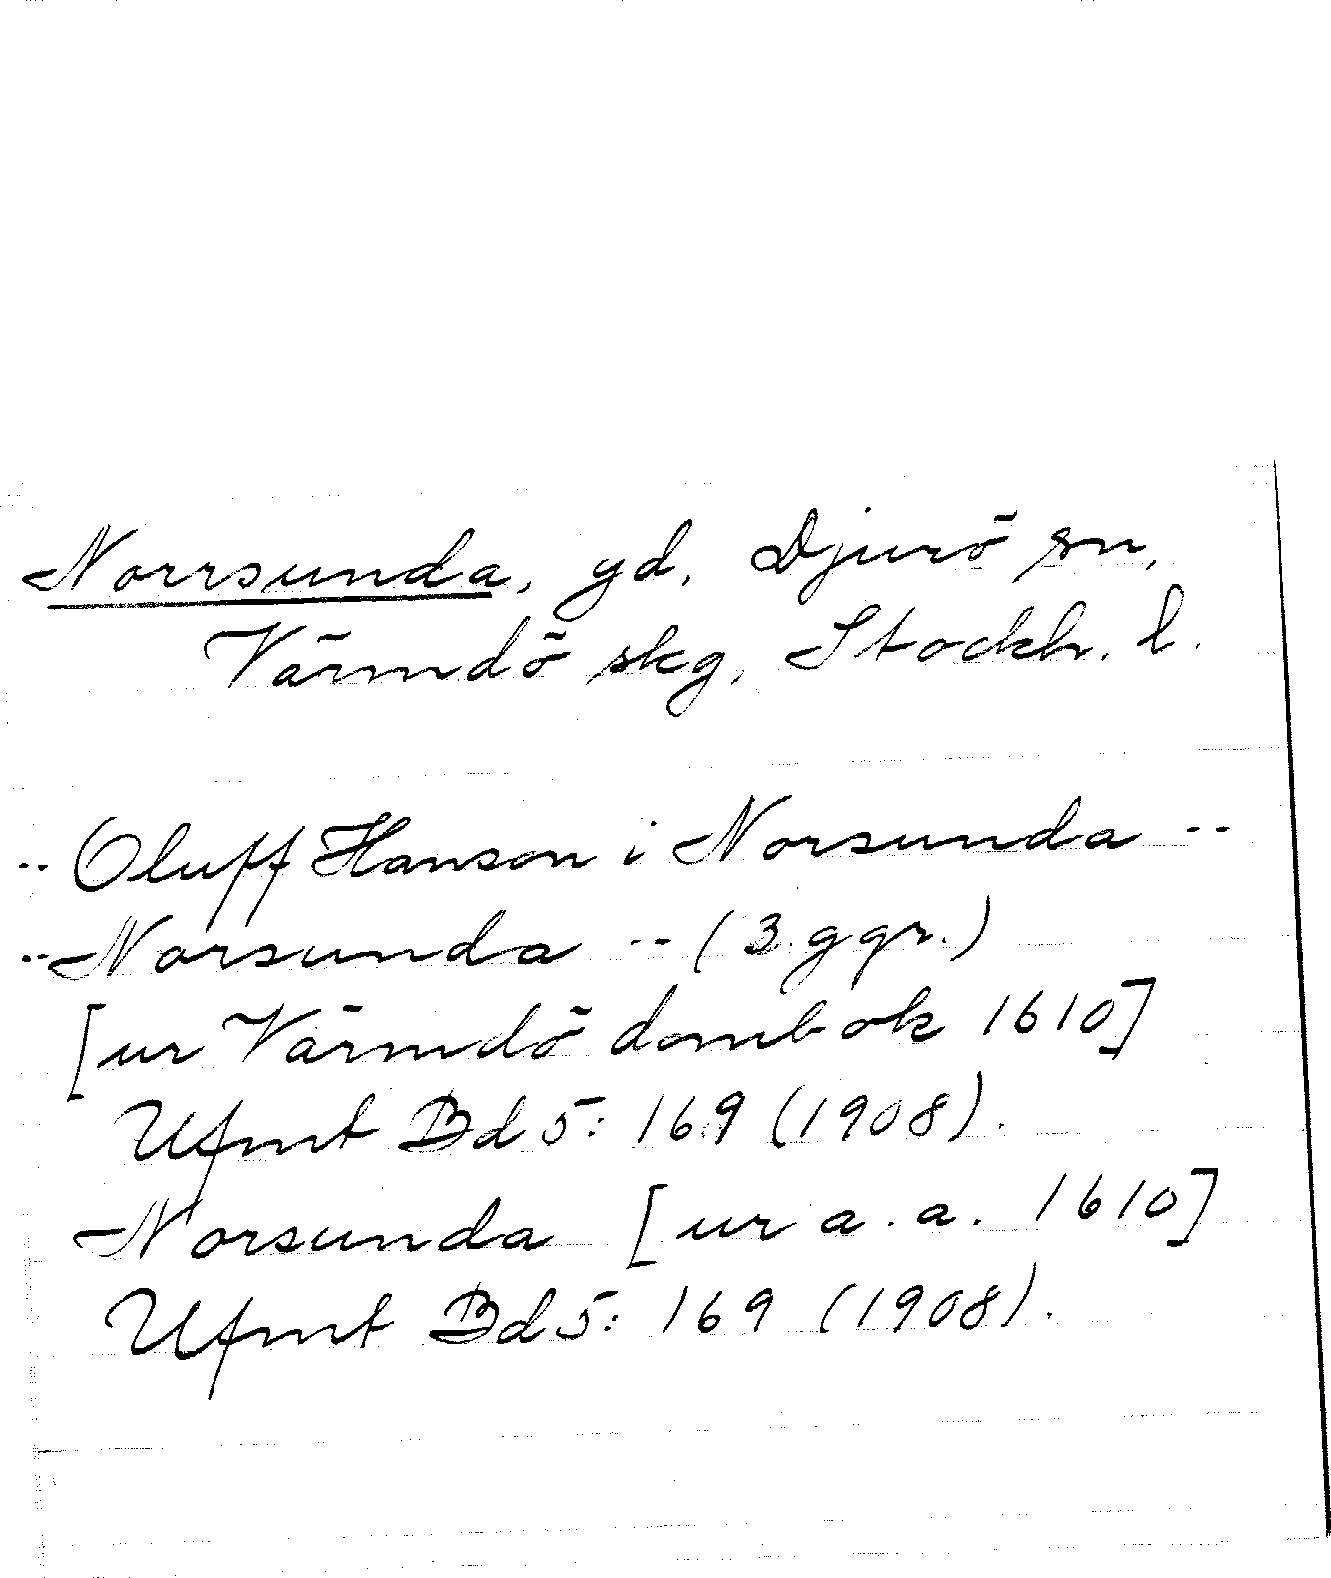 Norrsunda, gd, Djurö sn,
Värmdö skg, Stockh. l.
-- Oluff Hanson i Norsunda --
-- Norsunda -- (3 ggr.)
[ur Värmdö dombok 1610]
Ufmt Bd 5: 169 (1908).
Norsunda [ur a. a. 1610]
Ufmt Bd 5: 169 (1908).